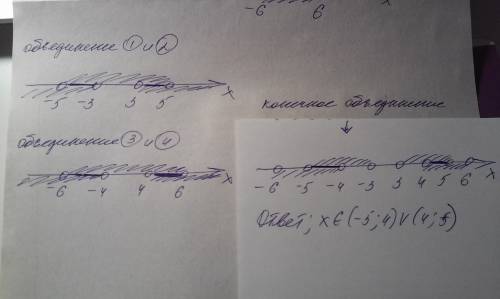 -6 6 x
объединение ① и ②
-5 -3 3 5 x
конечное объединение
объединение ③ и ④
-6 -4 4 6 x
-6 -5 -4 -3 3 4 5 6 x
Ответ; x ∈ (-5; 4) ∨ (4; 5)